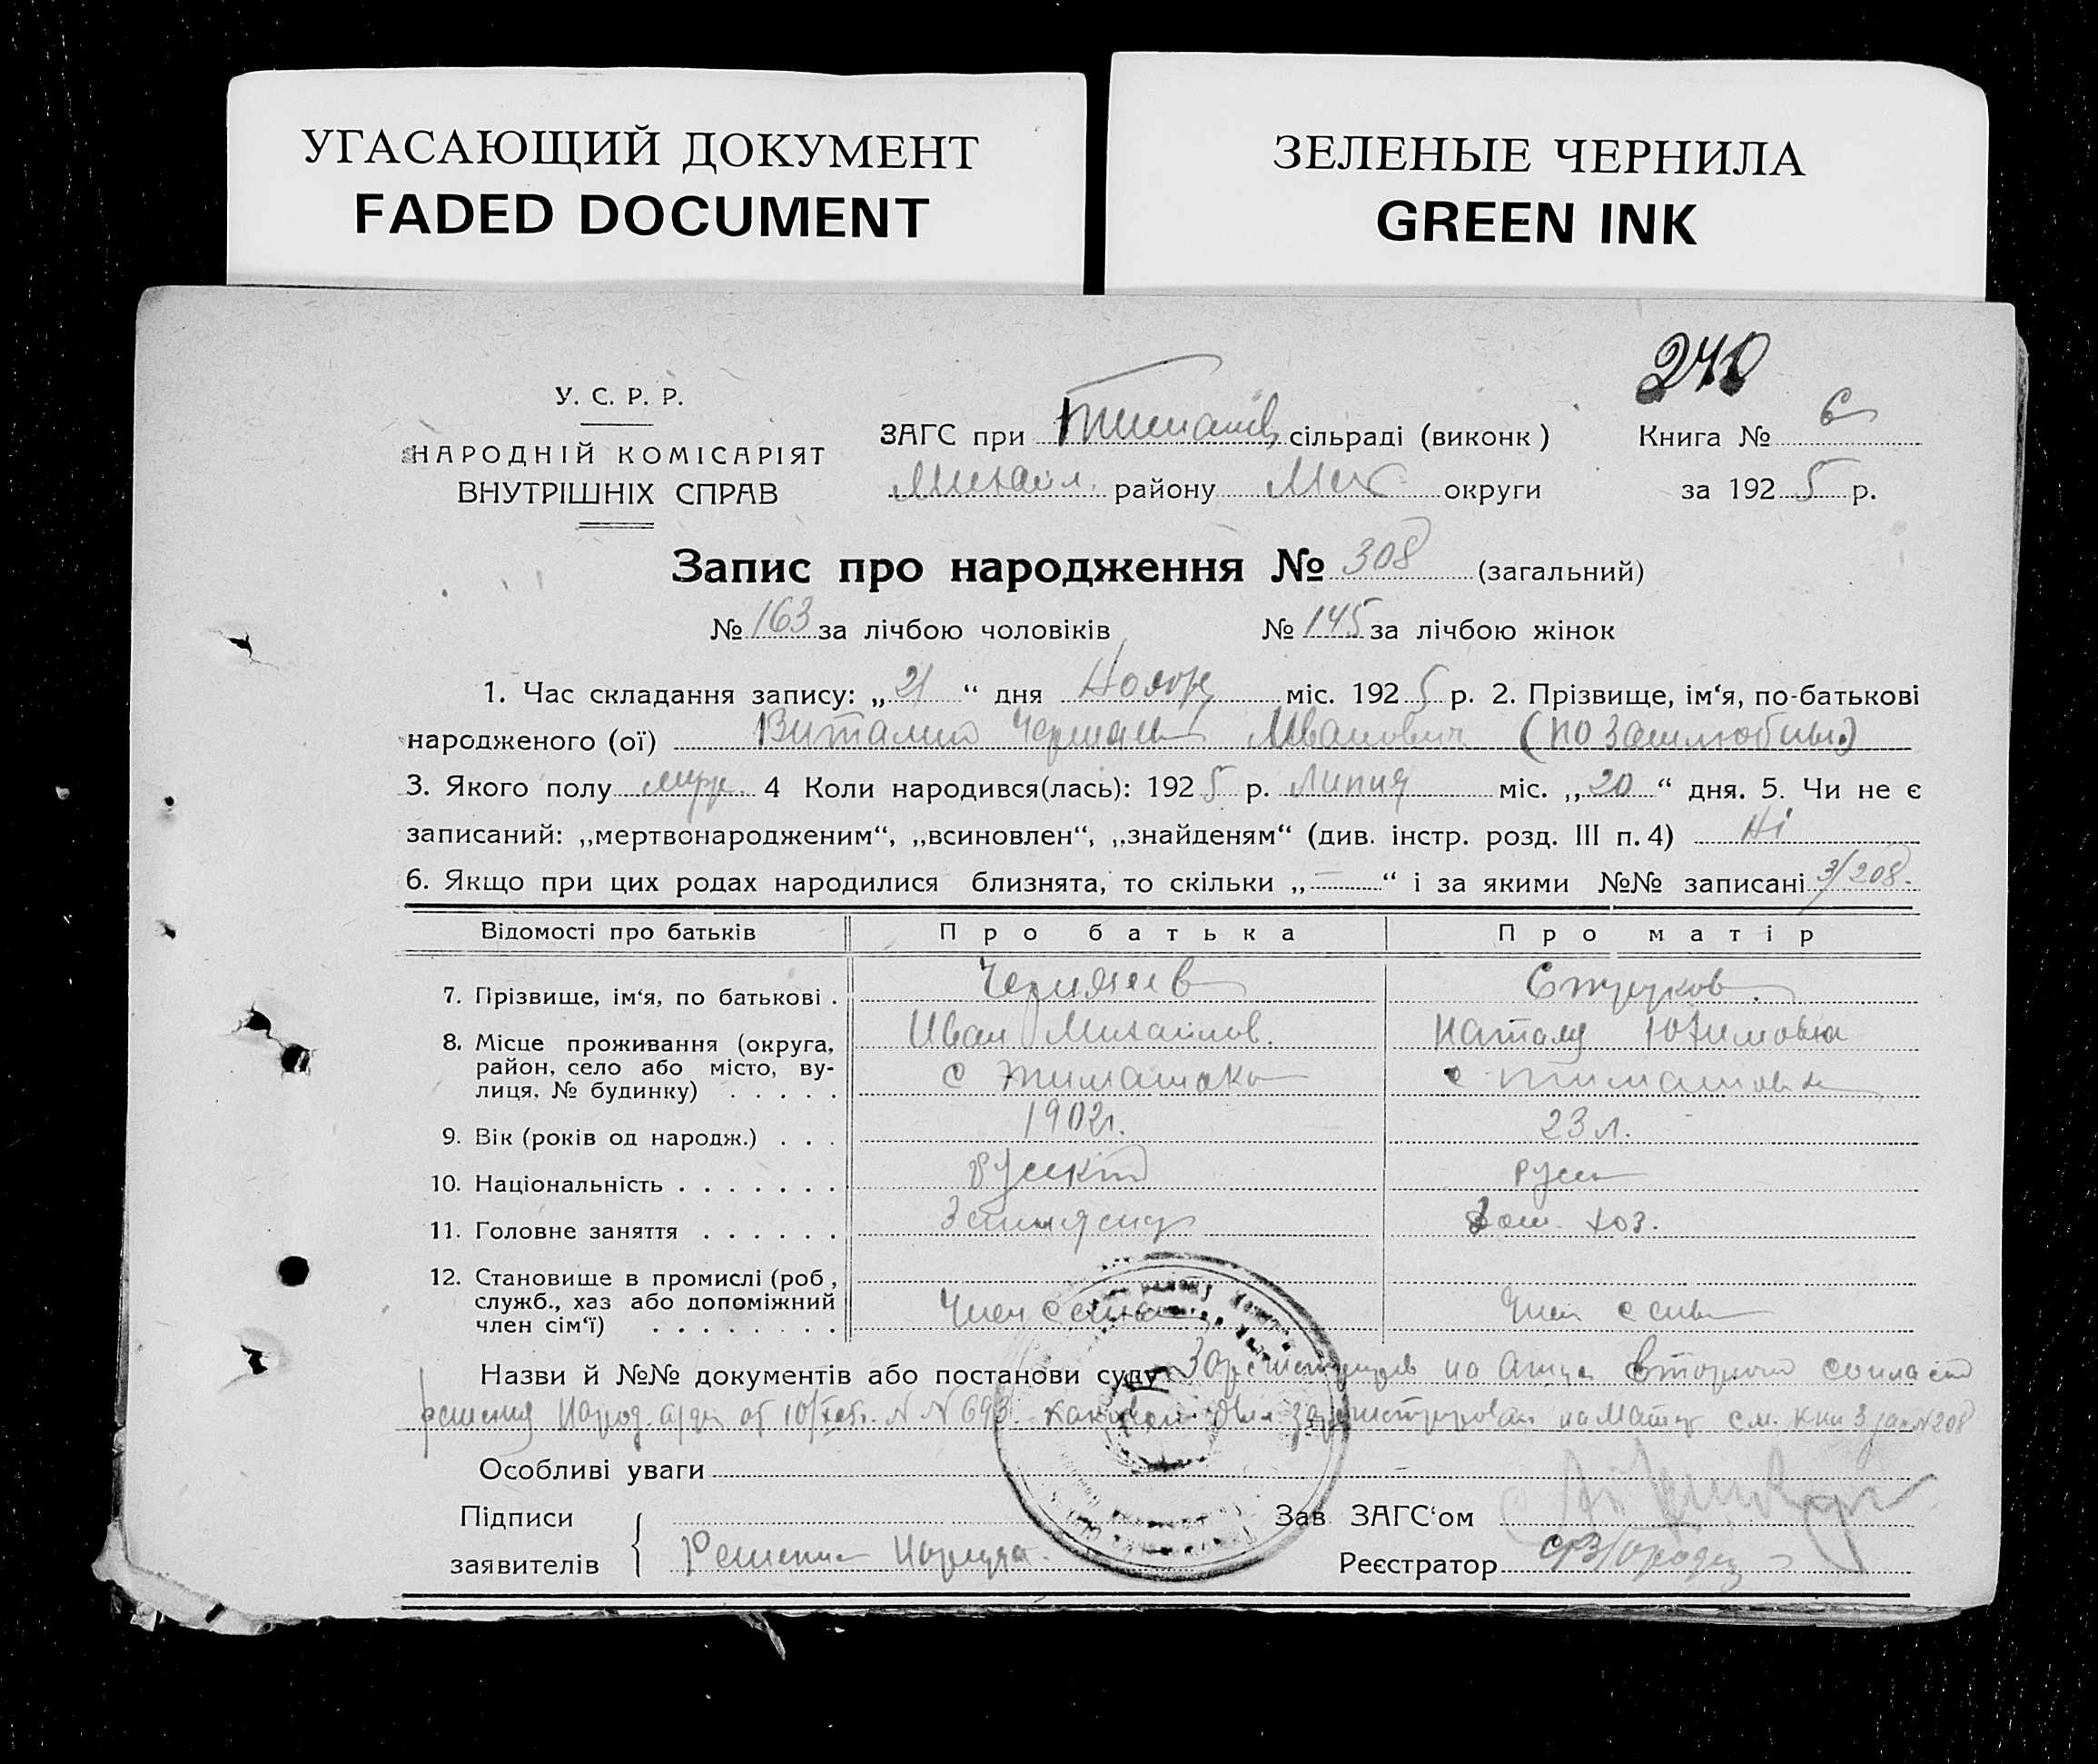 УГАСАЮЩИЙ ДОКУМЕНТ
FADED DOCUMENT
ЗЕЛЕНЫЕ ЧЕРНИЛА
GREEN INK
240
У. С. Р. Р.
НАРОДНІЙ КОМІСАРІЯТ
ВНУТРІШНІХ СПРАВ
ЗАГС при Тимашів сільраді (виконк)
Михайл. району Мел округи
Книга № 6
за 1925 р.
Запис про народження № 308 (загальний)
№ 163 за лічбою чоловіків № 145 за лічбою жінок
1. Час складання запису: „21“ дня Ноября міс. 1925 р. 2. Прізвище, ім‘я, по-батькові
народженого (ої) Виталий Иванович
3. Якого полу муж. 4 Коли народився(лась): 1925 р. Липня міс. „20“ дня. 5. Чи не є
записаний: „мертвонародженим“, „всиновлен“, „знайденям“ (див. інстр. розд. III п. 4) Ні
6. Якщо при цих родах народилися близнята, то скільки „—“ і за якими №№ записані 3/208.
Відомості про батьків Про батька Про матір
7. Прізвище, ім‘я, по батькові .
Иван Михайлов.
8. Місце проживання (округа, район, село або місто, вулиця, № будинку) . . . . .
с Тимашовка с Тимашовка
9. Вік (років од народж.) . . . 1902г. 23 л.
10. Національність . . . . . . . русский русск
11. Головне заняття . . . . . . Дом. хоз.
12. Становище в промислі (роб, служб., хаз або допоміжний член сім‘ї) . . . . . . . .
Член семьи Член семьи
Назви й №№ документів або постанови суду на отца вторично согласно
решения Народ. суда от 10/ № 693. был зарегистрирован на Матер см. кни 3 зап № 208
Особливі уваги
Підписи
заявителів Решение Нарсуда.
Зав ЗАГС‘ом
Реєстратор